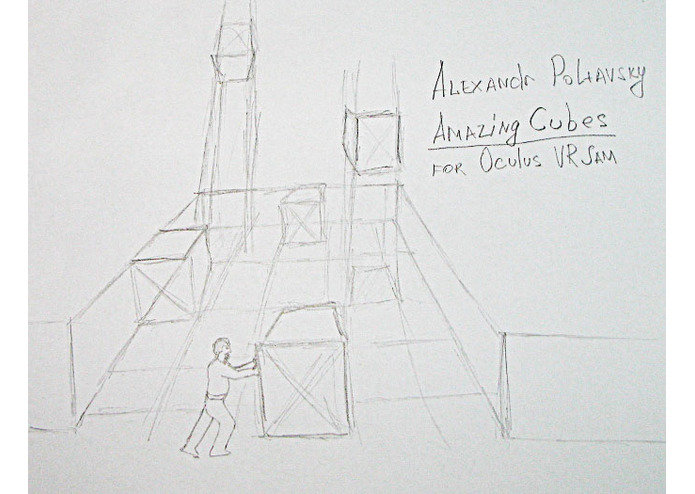 ALEXANDR POLIAVSKY
AMAZING CUBES
FOR OCULUS VR JAM